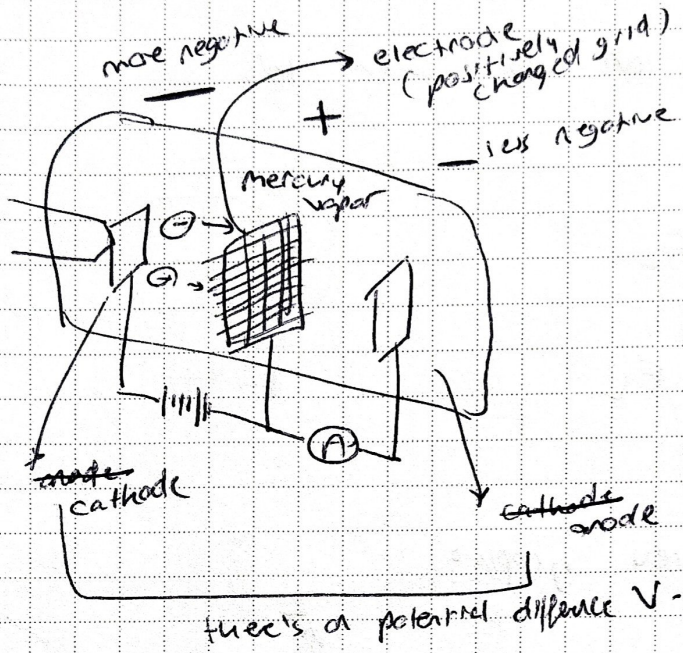 more negative
electrode
(positively
charged grid)
+
less negative
mercury
vapor
A
anode
cathode
cathode
anode
there's a potential diffence V.